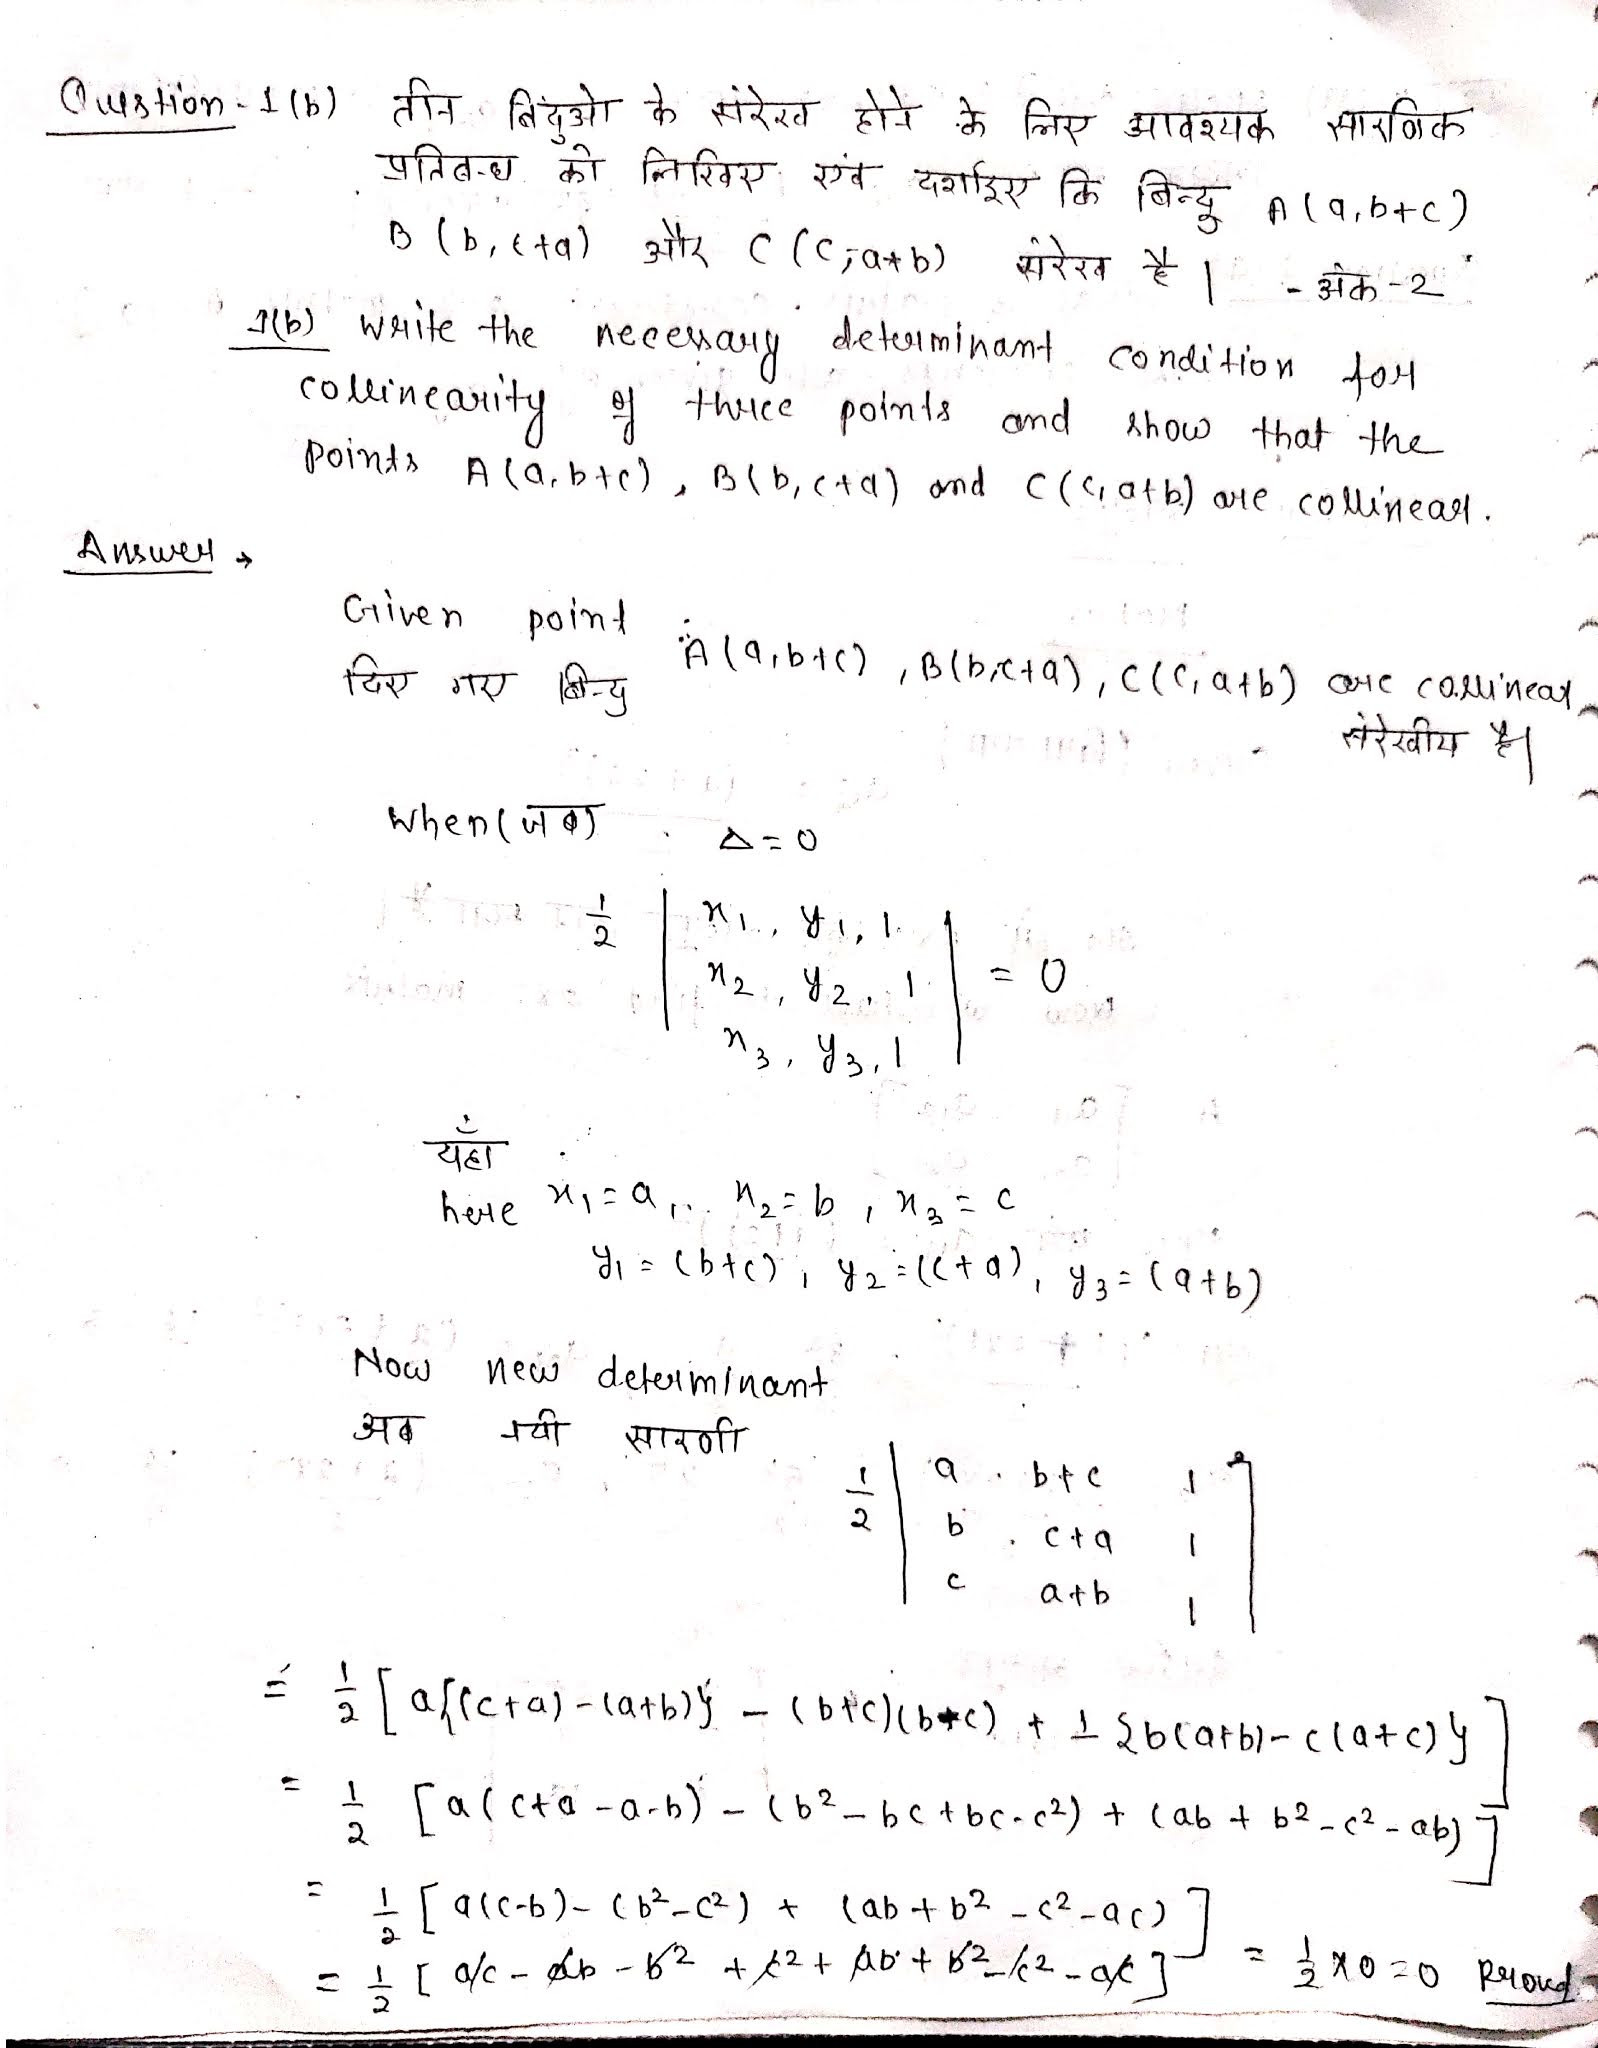 Question-1(b) तीन बिंदुओ के संरेख होने के लिए आवश्यक सारणिक
प्रतिबन्ध को लिखिए एवं दर्शाइए कि बिन्दु A(a,b+c)
B(b,c+a) और C(c,a+b) संरेख है | - अंक-2
1(b) write the necessary determinant condition for
collinearity of three points and show that the
points A(a,b+c), B(b,c+a) and C(c,a+b) are collinear.
Answer →
Given point A(a,b+c), B(b,c+a), C(c,a+b) are collinear
दिए गए बिन्दु संरेखीय है|
when(जब) Δ=0
1/2 | x₁, y₁, 1 |
| x₂, y₂, 1 | = 0
| x₃, y₃, 1 |
यहाँ
here x₁=a, x₂=b, x₃=c
y₁=(b+c), y₂=(c+a), y₃=(a+b)
Now new determinant
अब नयी सारणी
1/2 | a b+c 1 |
| b c+a 1 |
| c a+b 1 |
= 1/2 [a{(c+a)-(a+b)} - (b+c)(b-c) + 1{b(a+b)-c(a+c)}]
= 1/2 [a(c+a-a-b) - (b²-bc+bc-c²) + (ab+b²-c²-ab)]
= 1/2 [a(c-b)-(b²-c²) + (ab+b²-c²-ac)]
= 1/2 [ac-ab-b²+c²+ab+b²-c²-ac] = 1/2×0=0 Proud